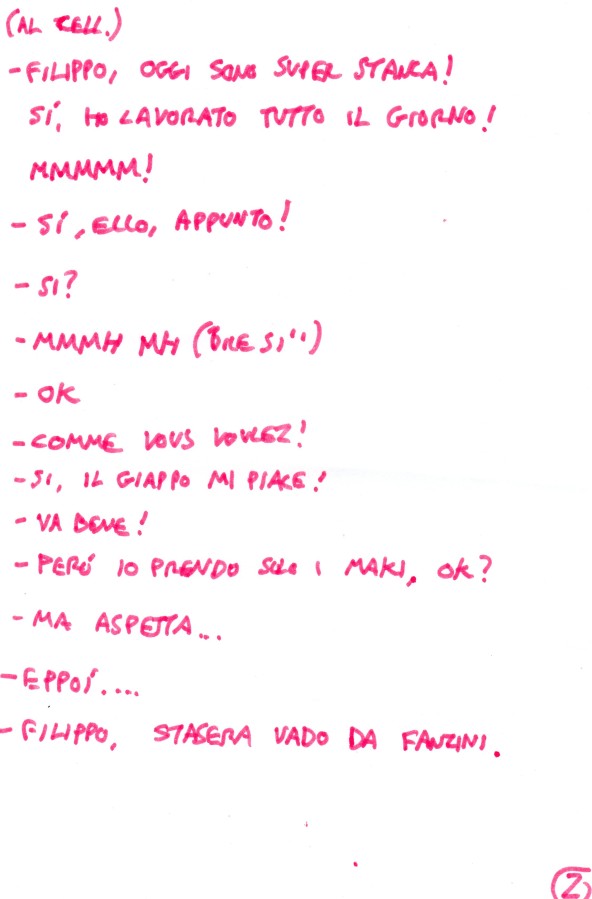 (AL CELL.)
- FILIPPO, OGGI SONO SUPER STANCA!
SÍ, HO LAVORATO TUTTO IL GIORNO!
MMMMM!
- SÍ, ELLO, APPUNTO!
- SI?
- MMMH MH (TRE SI'')
- OK
- COMME VOUS VOULEZ!
- SI, IL GIAPPO MI PIACE!
- VA BENE!
- PERÓ IO PRENDO SOLO I MAKI, OK?
- MA ASPETTA...
- EPPOI....
- FILIPPO, STASERA VADO DA FANZINI.
2